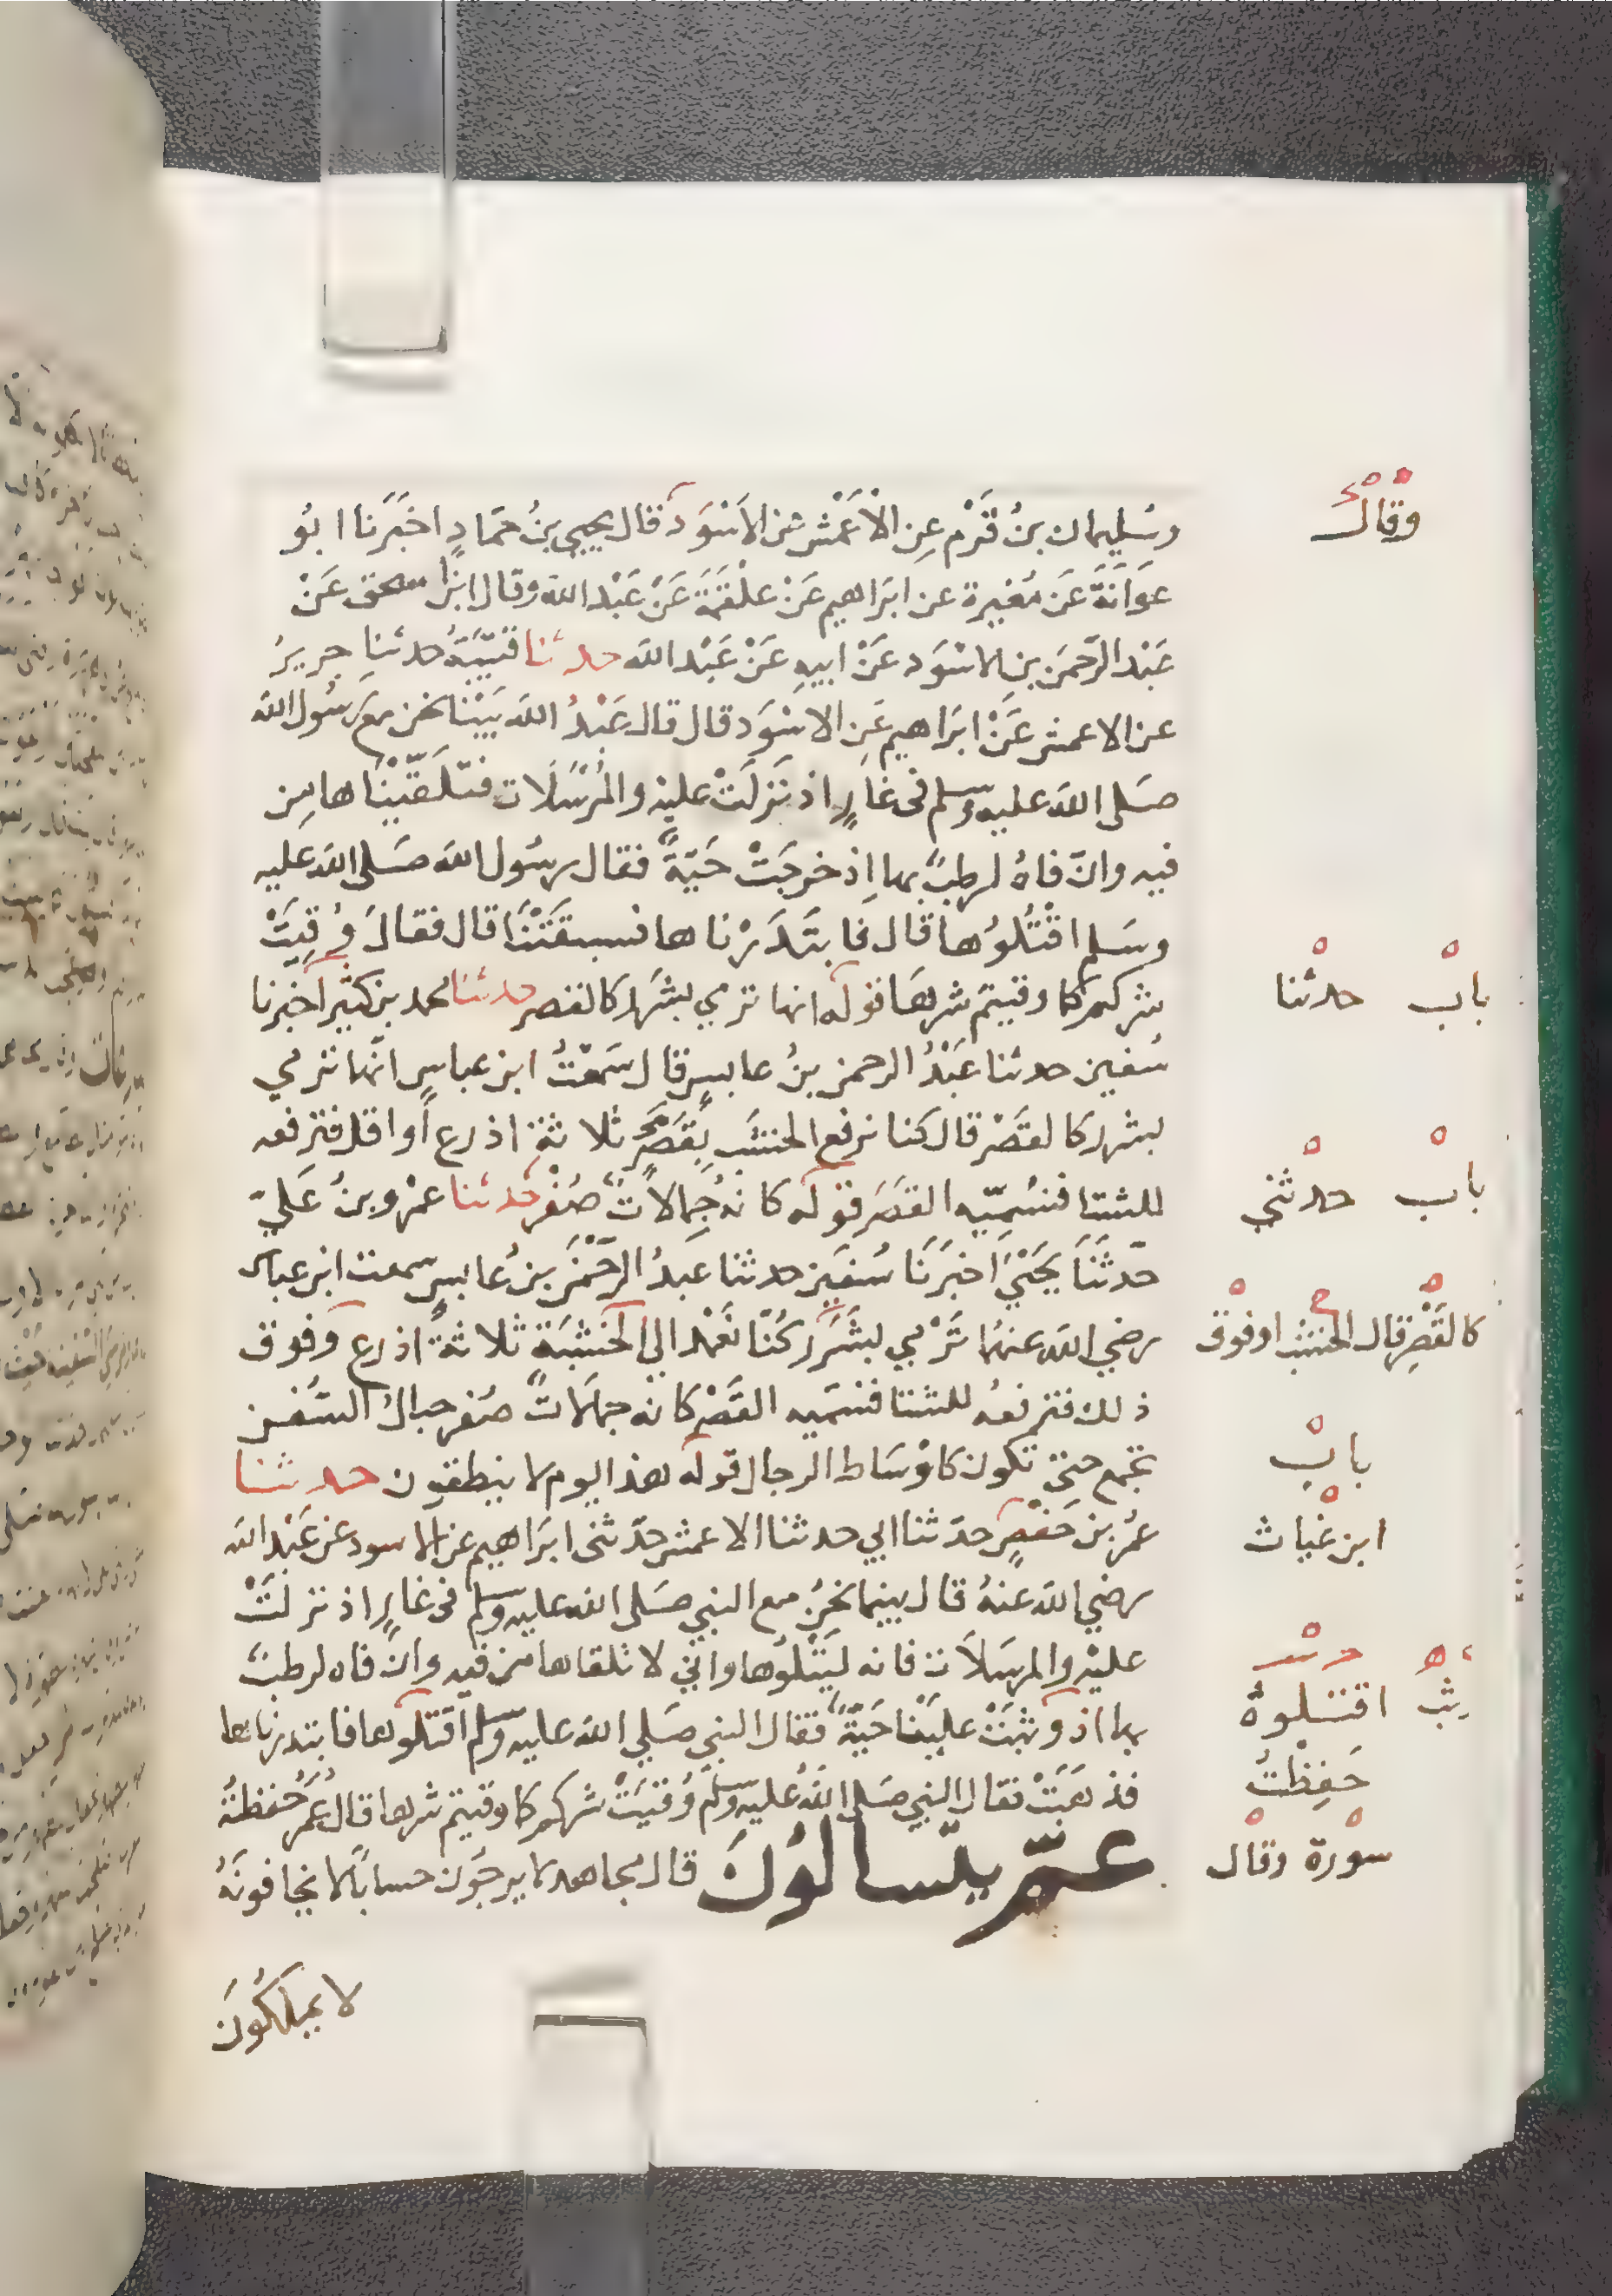 وسُليمان بنُ قَرْم عِن الاَعْمَش عن الاَسْوَد قال يحيى بنُ حمَادٍ اخبَرَنا ابُو
عوَانَةَ عَن مُغيرة عن ابرَاهيم عَنْ علْقَمَةَ عَنْ عَبْد الله وقال ابنُ اسحق عَنْ
عَبْد الرَّحمَن بنِ الاسْوَد عَنْ ابيهِ عَنْ عَبْد الله حدثنا قتيْبَةُ حدثنا جريرُ
عن الاعمش عَنْ ابرَاهيم عَنِ الاسْوَد قال قال عَبْدُ الله بَيْنا نحن مع رسُول الله
صَلى الله عليه وسلم فى غارٍ اذ نَزلَتْ عليْه والمُرْسَلَات فتلَقّيْناها مِن
فيه وانّ فاهُ لرطبٌ بها اِذ خرجَتْ حَيّةٌ فقال رسُول الله صَلى الله عليه
وسَلم اقْتُلُوها قال فابتَدَرْناها فسبقَتْنَا قال فقالَ وُقِيَتْ
شركم كما وقيتم شرها قوله انها ترمي بشرَر كالقصر حدثنا محمد بن كثير اخبرنا
سُفين حدثنا عَبْدُ الرحمن بنُ عابسٍ قال سَمعْتُ ابن عباسٍ انّها ترمي
بشرر كالقَصَر قال كنا نرفع الخشَب بِقَصَرٍ ثلاثة اذرع اَو اقل فنرفعه
للشتا فنسُميّه القصَر قوله كانه جُمالاتٌ صُفْر حدثنا عمْرو بنُ عَليّ
حدّثَنَا يَحْيَي اَخبَرَنَا سُفيَن حدثنا عَبدُ الرّحْمَن بنُ عابسٍ سمعت ابن عباس
رضي الله عنهُمَا تَرْمي بشَرَر كُنّا نَعْمد الى الخَشبَة ثلاثةَ اذرع وفوق
ذلك فنرفعُه للشتا فنسَميه القَصَر كانه جمالاتٌ صُفر حبالُ السُفن
تجمع حتى تكون كاَوْسَاط الرجال قوله هذا يوم لا ينطقون حدثنا
عُمرُ بن حَفْصٍ حدَثنا ابي حدثنا الاعمش حدّثنى ابرَاهيم عن الاسود عن عَبْد الله
رضي الله عنهُ قال بينما نحْنُ مع النبي صَلى الله عليه وسلم فى غارٍ اذ نزلَتْ
عليْه والمرسَلاَت فانه ليَتْلُوها وانى لاتلقاها من فيه وانّ فاه لرطبٌ
بها اذ وثبَتْ عليْنا حَيّةٌ فقال النبي صَلي الله عليه وسَلم اقتلوها فابتدرناها
فذهبَتْ فقال النبي صَلى اللهُ عليه وسلّم وُقيَتْ شركم كما وقيتم شرها قال عُمَرُ حَفظتُهُ
عمّ يتسالوُنَ قال مجاهد لا يرجُون حسابًا لا يخافونَهُ
لا يملكُونَ
وقالَ
باب حدثنا
باب حدثني
كالقَصَر قال الخشب اوفوق
بابْ
ابن غياث
اقتلوهُ
حَفِظْتُ
سورة وقال